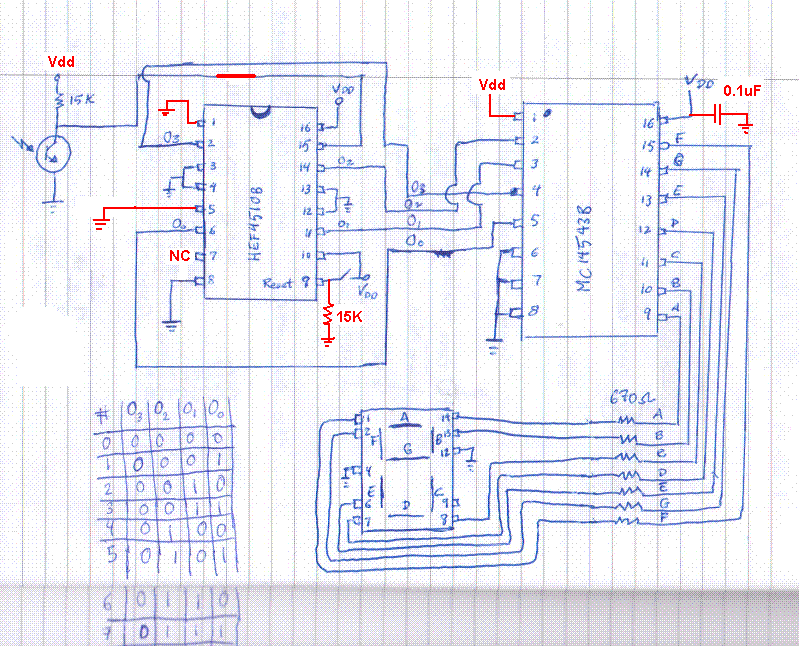 Vdd
15K
VDD
HEF4510B
1
2
3
4
5
6
7
8
16
15
14
13
12
11
10
9
O3
O0
NC
O2
O1
Reset
VDD
15K
O3
O2
O1
O0
Vdd
VDD
0.1uF
MC14543B
1
2
3
4
5
6
7
8
16
15
14
13
12
11
10
9
F
G
E
D
C
B
A
670Ω
A
B
C
D
E
G
F
1
2
4
6
7
14
13
12
9
8
A
F
B
G
E
C
D
# O3 O2 O1 O0
0 0 0 0 0
1 0 0 0 1
2 0 0 1 0
3 0 0 1 1
4 0 1 0 0
5 0 1 0 1
6 0 1 1 0
7 0 1 1 1